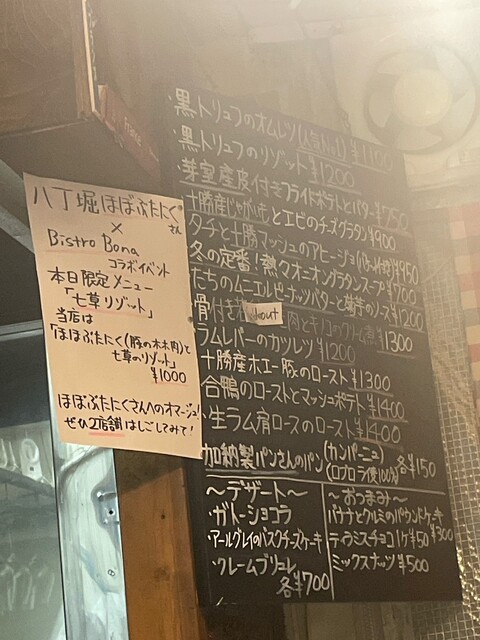 八丁堀ほぼぶたにくさん
×
Bistro Bona
コラボイベント
本日限定メニュー
「七草リゾット」
当店は
「ほぼぶたにく(豚のホホ肉)と
七草のリゾット」
¥1000
ほぼぶたにくさんへのオマージュ!
ぜひ2店舗はしごしてみて!
・黒トリュフのオムレツ(人気No.1) ¥1100
・黒トリュフのリゾット ¥1200
・芽室産皮付きフライドポテトとバター ¥750
・十勝産じゃがいもとエビのチーズグラタン ¥900
・タチと十勝マッシュのアヒージョ ¥950
・冬の定番!熱々オニオングラタンスープ ¥700
・たちのムニエル ¥1200
・骨付き
out
肉とキノコのクリーム煮 ¥1300
・ラムレバーのカツレツ ¥1200
・十勝産ホエー豚のロースト ¥1300
・合鴨のローストとマッシュポテト ¥1400
・生ラム肩ロースのロースト ¥1400
加納製パンさんのパン(カンパーニュ)
各¥150
〜デザート〜
・ガトーショコラ
・アールグレイのバスクチーズケーキ
・クレームブリュレ
各¥700
〜おつまみ〜
バナナとクルミのパウンドケーキ
¥300
ティラミスチョコ1ケ¥50
ミックスナッツ ¥500